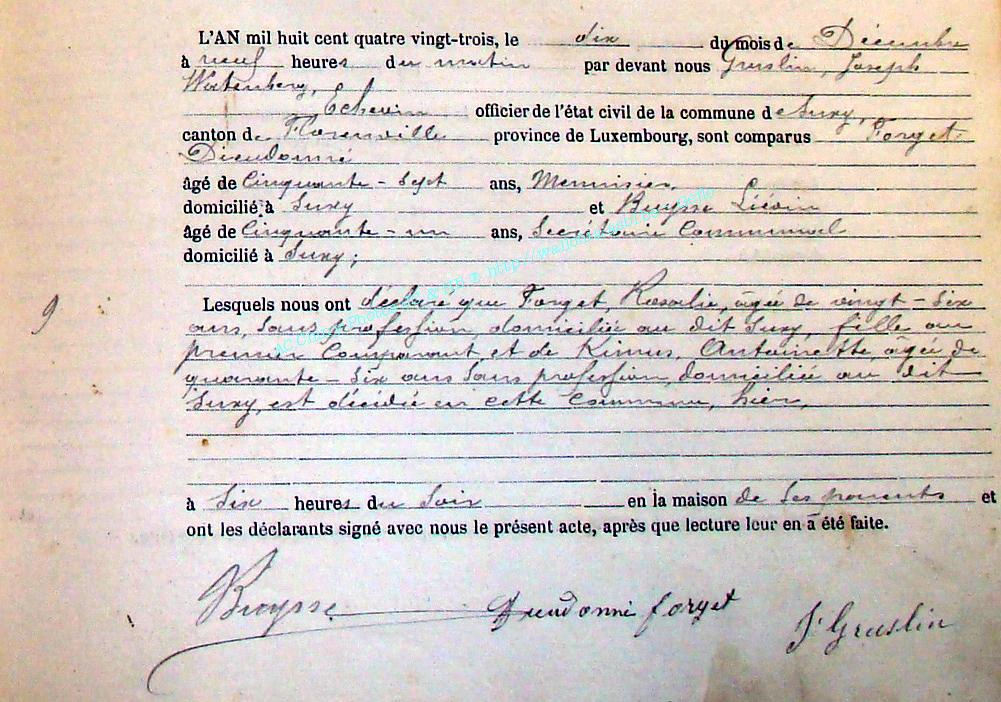 L'AN mil huit cent quatre vingt-trois, le dix du mois de Décembre
à neuf heures du matin par devant nous Gruslin, Joseph
Watenberg,
Echevin officier de l'état civil de la commune de Suxy,
canton de Florenville province de Luxembourg, sont comparus Forget
Dieudonné
âgé de Cinquante-sept ans, Menuisier
domicilié à Suxy et Buysse Liévin
âgé de Cinquante-un ans, Secrétaire Communal
domicilié à Suxy;
9
Lesquels nous ont déclaré que Forget, Rosalie, âgée de vingt-six
ans, sans profession, domiciliée au dit Suxy, fille au
premier Comparant et de Kimus, Antoinette, âgée de
quarante-six ans sans profession, domiciliée au dit
Suxy, est décédée en cette Commune, hier,
à six heures du soir en la maison de ses parents et
ont les déclarants signé avec nous le présent acte, après que lecture leur en a été faite.
Buysse Dieudonné forget J. Gruslin